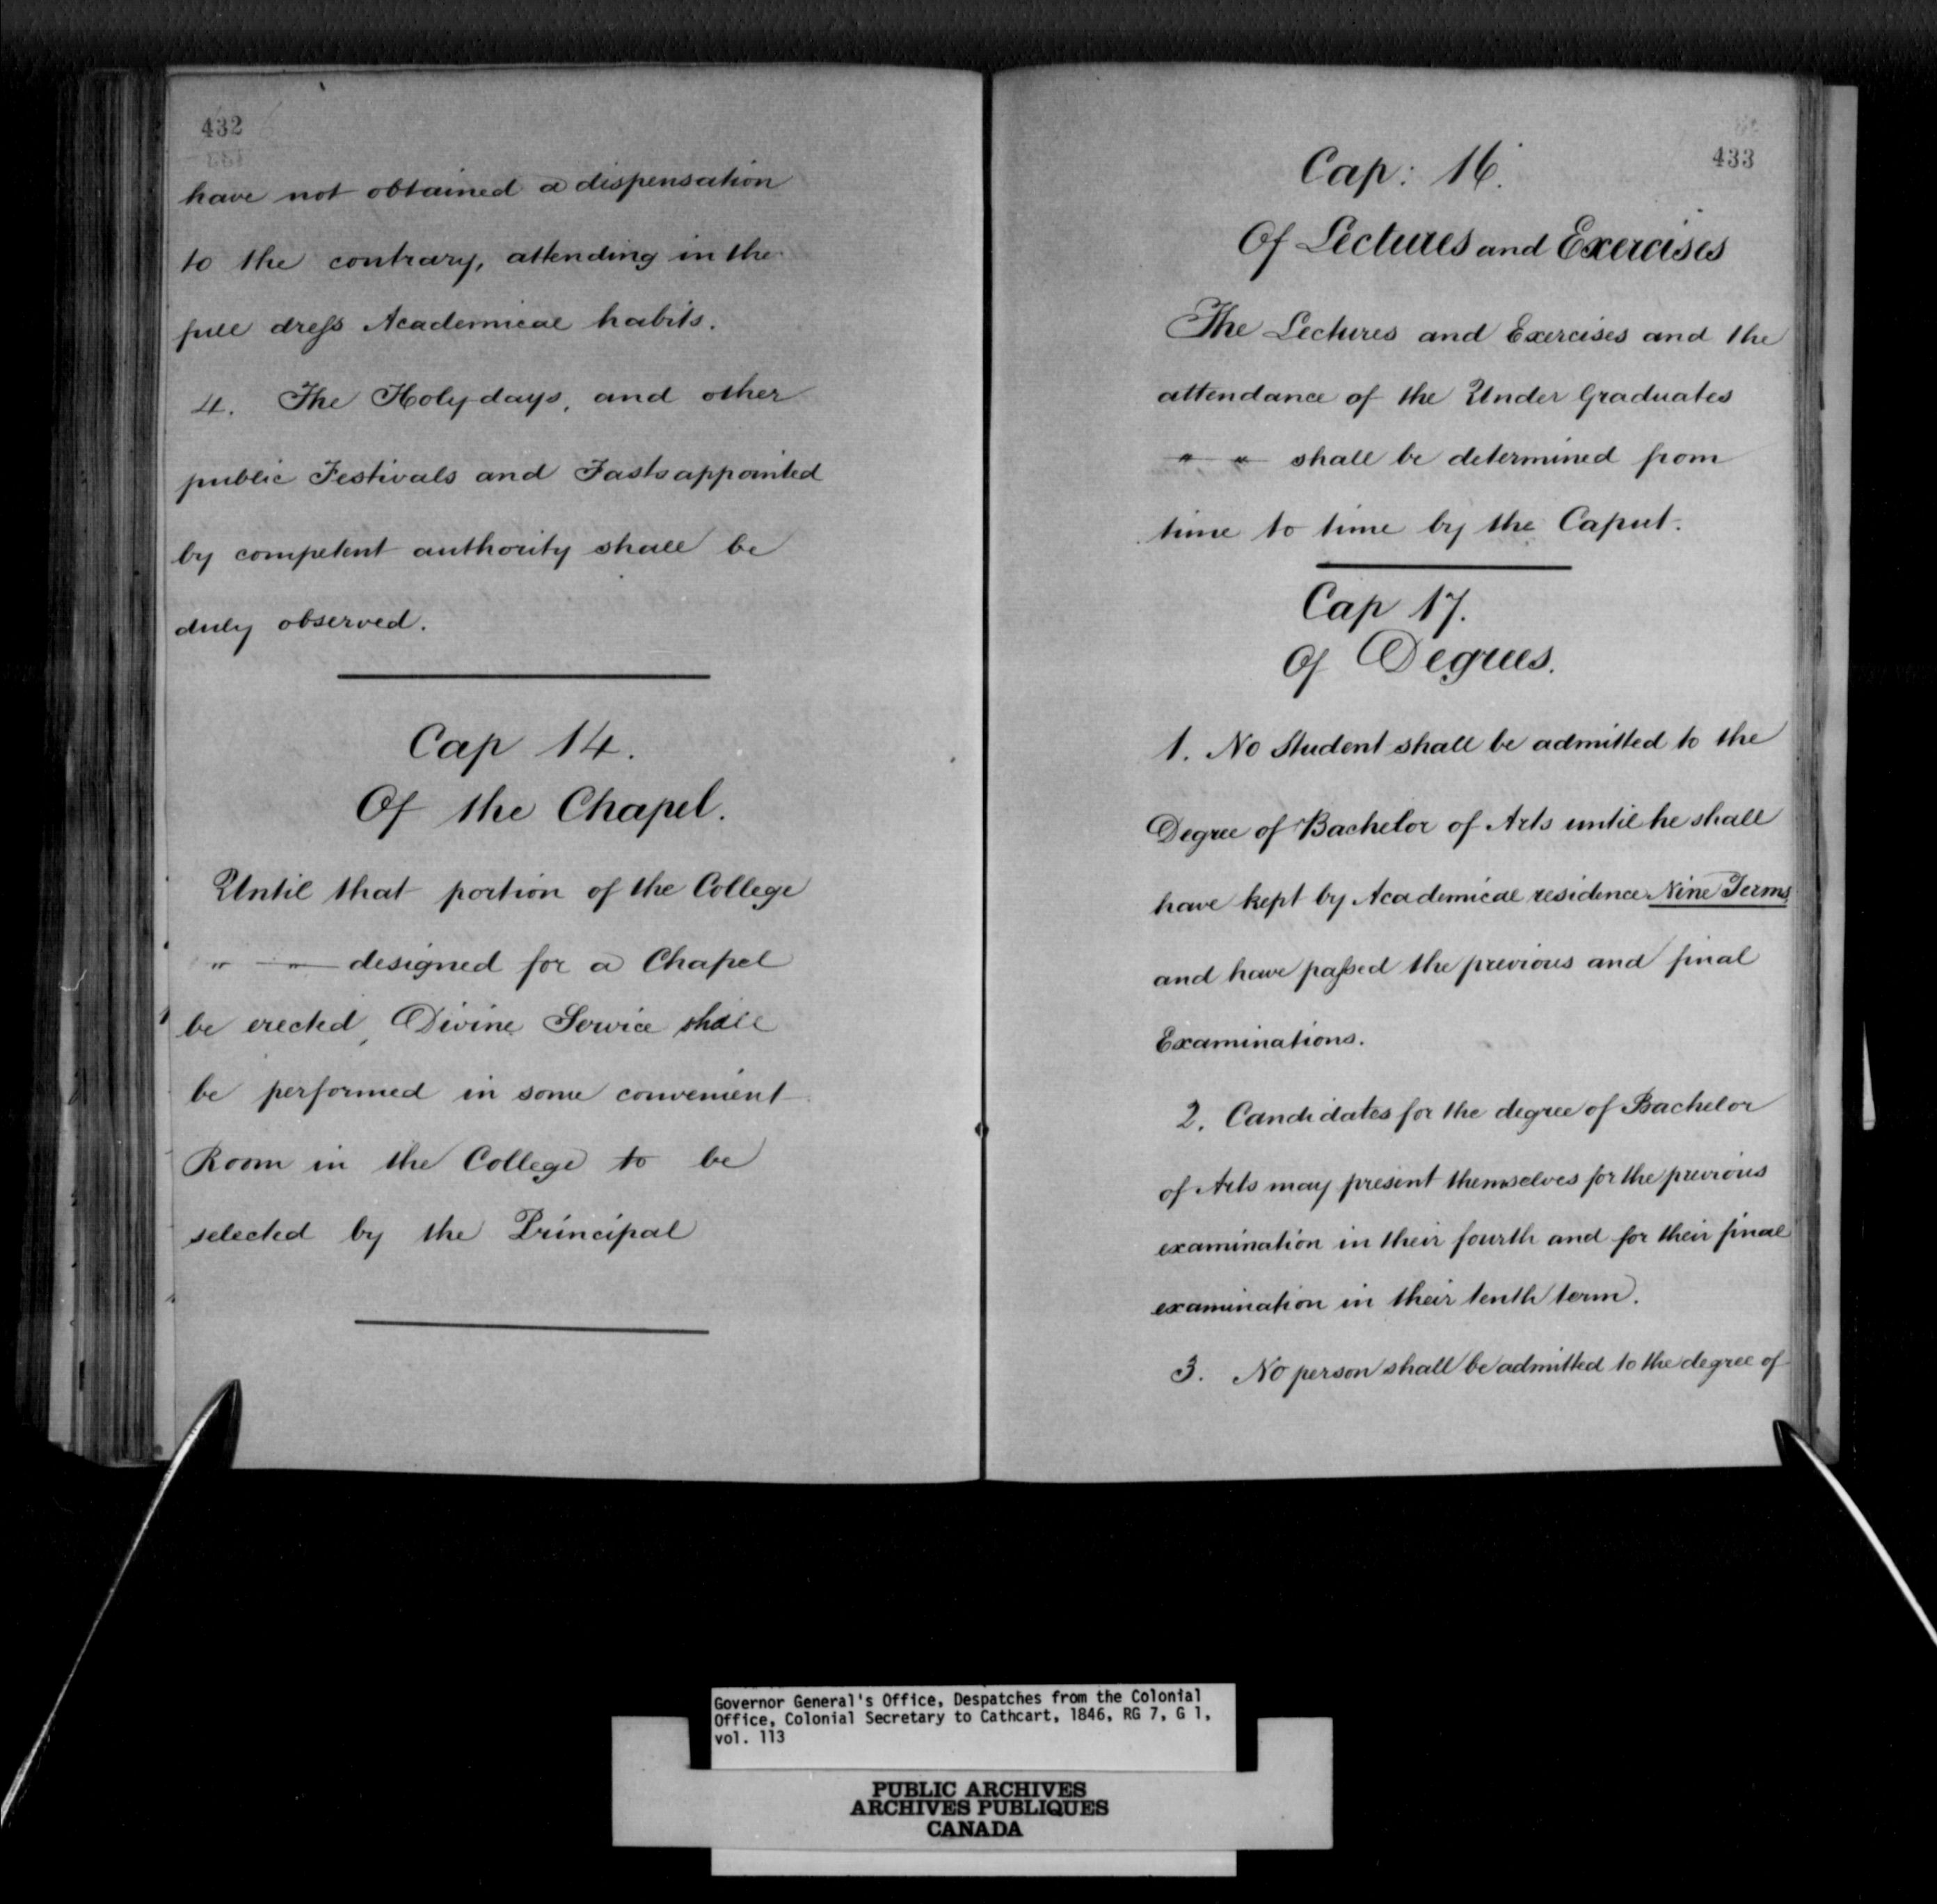 432
have not obtained a dispensation
to the contrary, attending in the
full dress Academical habits.
4. The Holy-days, and other
public Festivals and Fasts appointed
by competent authority shall be
duly observed.
Cap 14.
Of the Chapel.
Until that portion of the College
" — " — designed for a Chapel
be erected, Divine Service shall
be performed in some convenient
Room in the College to be
selected by the Principal
433
Cap: 16.
Of Lectures and Exercises
The Lectures and Exercises and the
attendance of the Under Graduates
" — " — shall be determined from
time to time by the Caput.
Cap 17.
Of Degrees.
1. No Student shall be admitted to the
Degree of Bachelor of Arts until he shall
have kept by Academical residence Nine Terms
and have passed the previous and final
Examinations.
2. Candidates for the degree of Bachelor
of Arts may present themselves for the previous
examination in their fourth and for their final
examination in their tenth term.
3. No person shall be admitted to the degree of
Governor General's Office, Despatches from the Colonial
Office, Colonial Secretary to Cathcart, 1846, RG 7, G 1,
vol. 113
PUBLIC ARCHIVES
ARCHIVES PUBLIQUES
CANADA